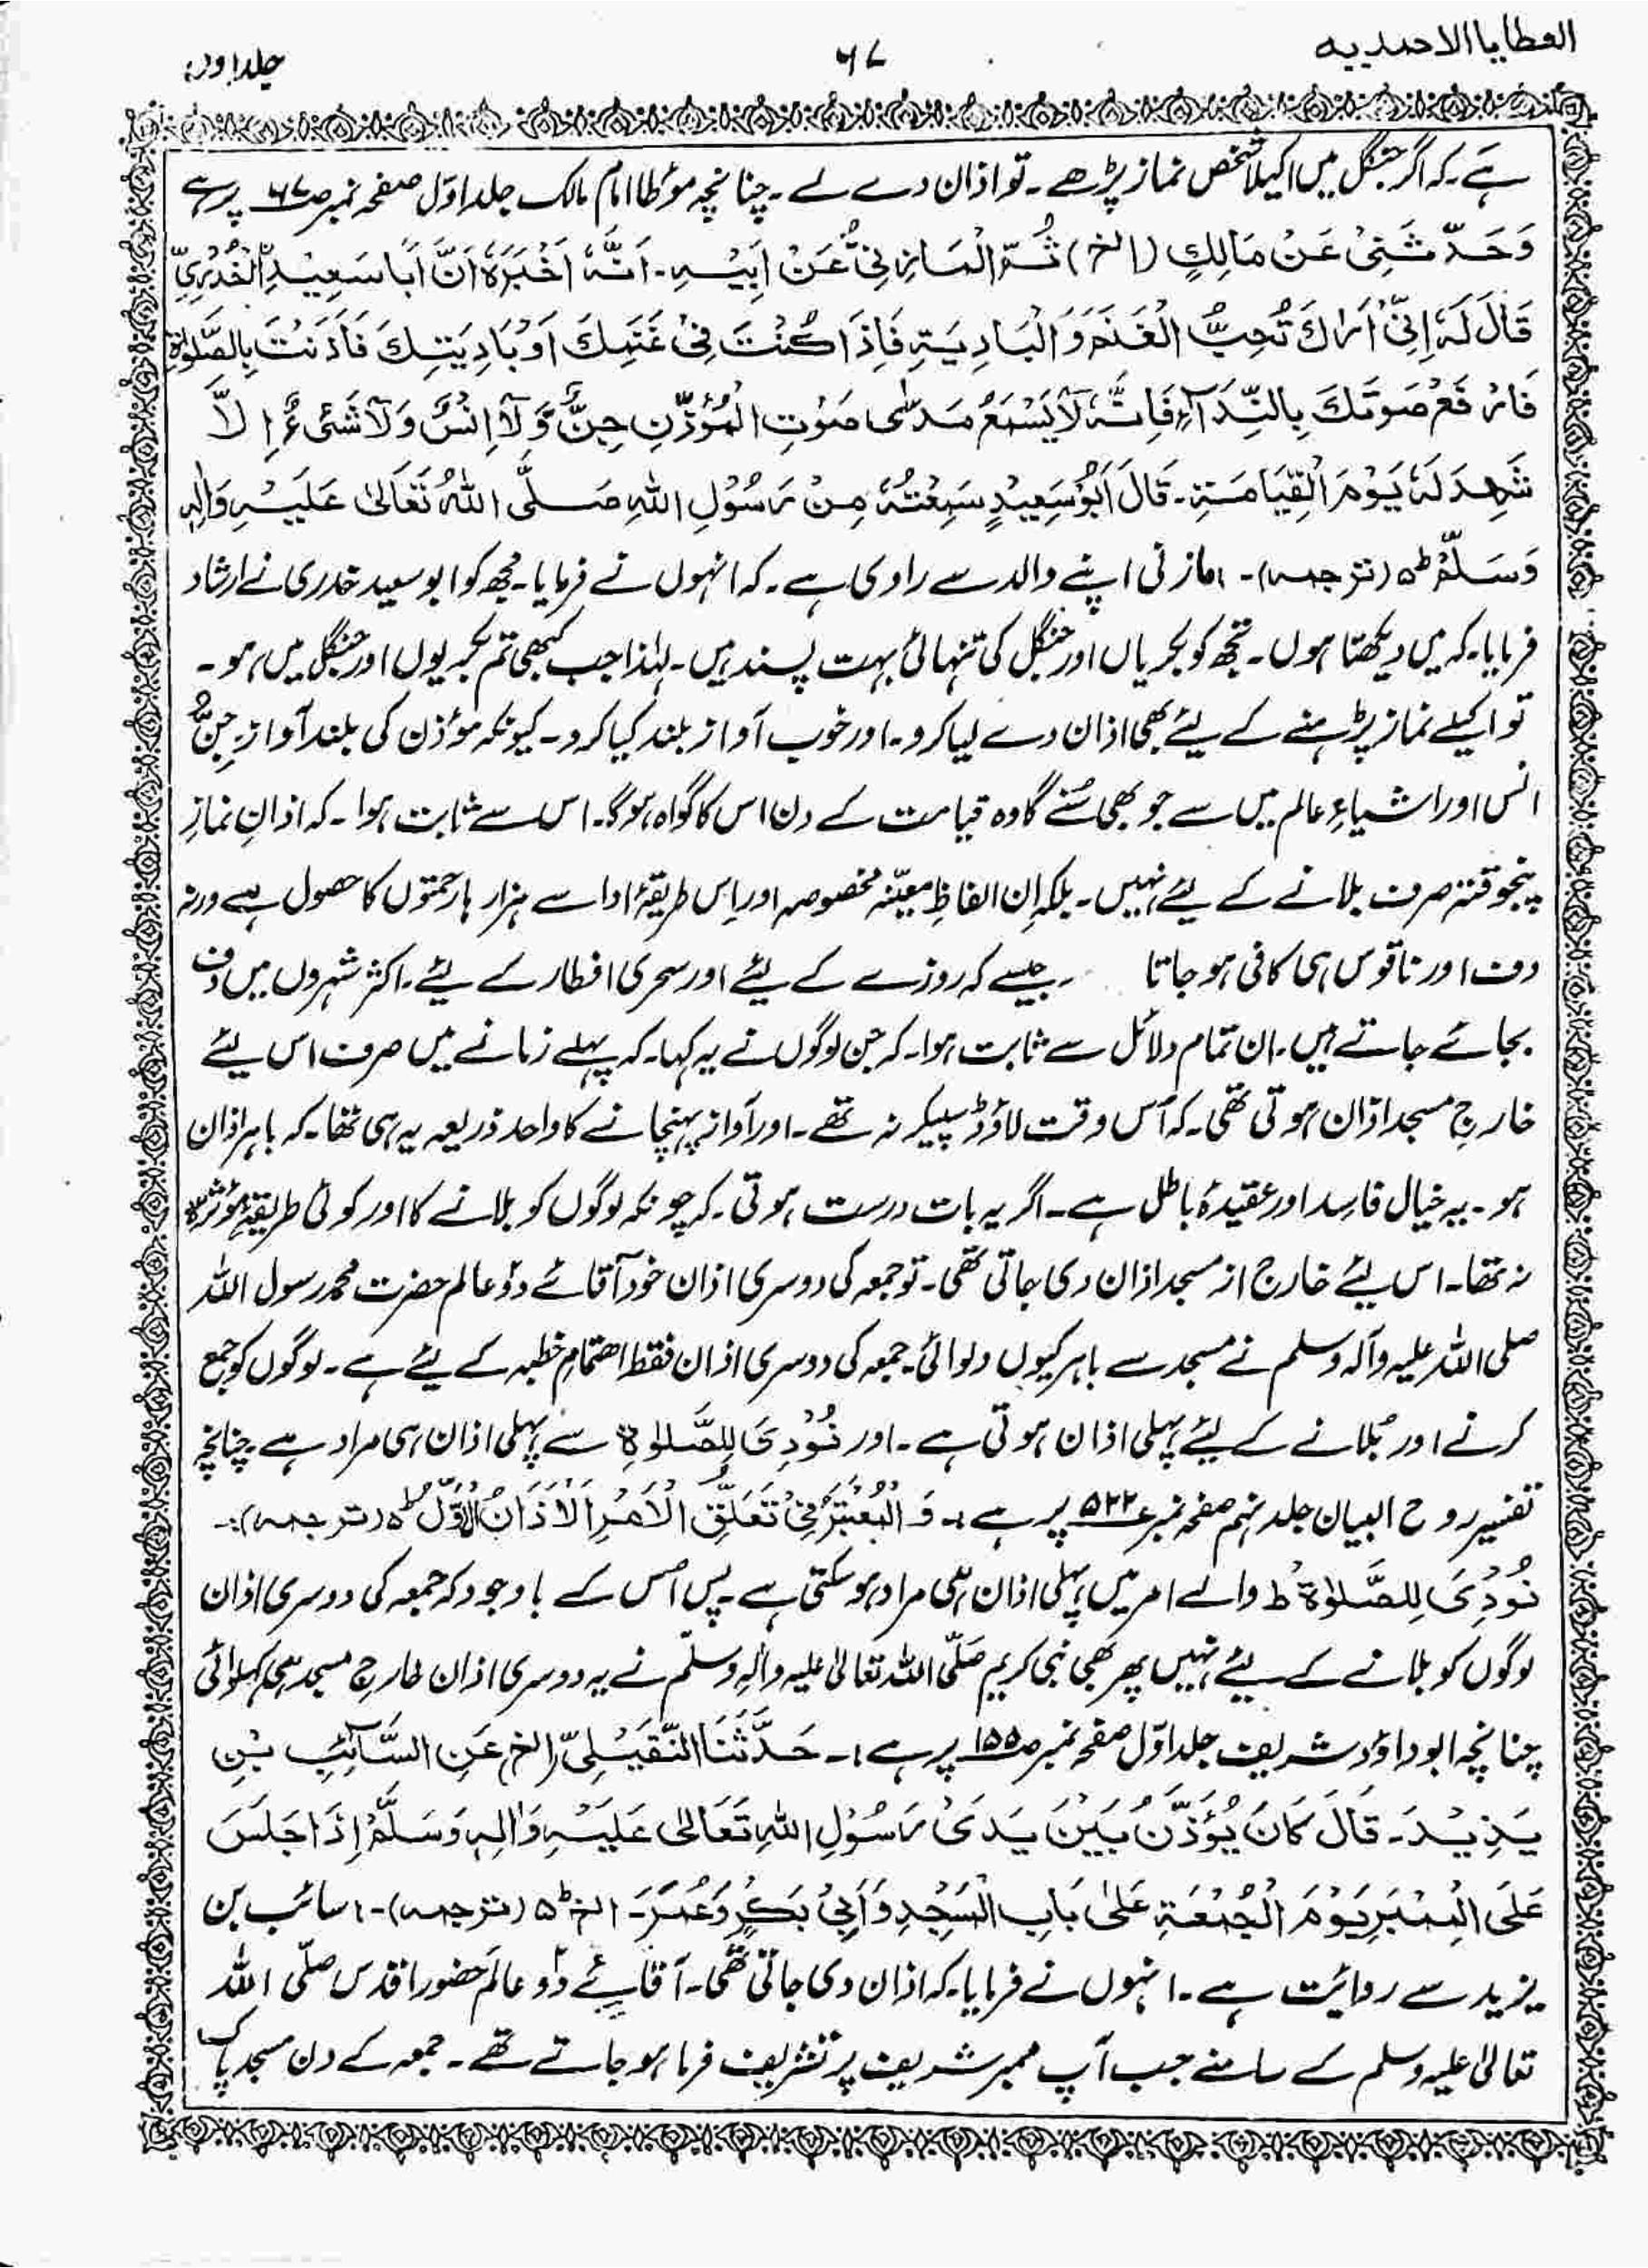 العطایا الاحمدیہ
۶۷
جلد اول
ہے۔ کہ اگر جنگل میں اکیلا شخص نماز پڑھے۔ تو اذان دے لے۔ چنانچہ مؤطا امام مالک جلد اوّل صفحہ نمبر ص۶۷ پر ہے
وَحَدَّثَنِیْ عَنْ مَالِكٍ (الخ) ثُمَّ الْمَازِنِیْ عَنْ اَبِیْہِ۔ اَنَّہٗ اَخْبَرَہٗ اَنَّ اَبَا سَعِیْدِ الْخُدْرِیِّ
قَالَ لَہٗ اِنِّیْ اَرَاكَ تُحِبُّ الْغَنَمَ وَ الْبَادِیَۃِ فَاِذَا كُنْتَ فِیْ غَنَمِكَ اَوْ بَادِیَتِكَ فَاَذَنْتَ بِالصَّلوٰۃِ
فَارْفَعْ صَوتَكَ بِالنِّدَآءِ فَاِنَّہٗ لَا یَسْمَعُ مَدٰی صَوْتِ الْمُؤَذِّنِ جِنٌّ وَّلَا اِنْسٌ وَلَا شَیْءٌ اِلَّا
شَھِدَ لَہٗ یَوْمَ الْقِیَامَۃِ۔ قَالَ اَبُوْ سَعِیْدٍ سَمِعْتُہٗ مِنْ رَسُوْلِ اللہِ صَلَّی اللہُ تَعَالٰی عَلَیْہِ وَاٰلِہٖ
وَسَلَّمْ ط ہ (ترجمہ)۔ مازنی اپنے والد سے راوی ہے۔ کہ انہوں نے فرمایا۔ مجھ کو ابو سعید خدری نے ارشاد
فرمایا۔ کہ میں دیکھتا ہوں۔ تجھ کو بکریاں اور جنگل کی تنہائی بہت پسند ہیں۔ لہٰذا جب کبھی تم بکریوں اور جنگل میں ہو۔
تو اکیلے نماز پڑہنے کے لیئے بھی اذان دے لیا کرو۔ اور خوب آواز بلند کیا کرو۔ کیونکہ مؤذن کی بلند آواز جِنّ
انس اور اشیاءِ عالم میں سے جو بھی سُنے گا وہ قیامت کے دن اس کا گواہ ہو گا۔ اس سے ثابت ہوا۔ کہ اذانِ نمازِ
پنجوقتہ صرف بلانے کے لیئے نہیں۔ بلکہ اِن الفاظِ معیّنہ مخصوصہ اور اِس طریقۂ ادا سے ہزار ہا رحمتوں کا حصول ہے ورنہ
دف اور ناقوس ہی کافی ہو جاتا ۔ جیسے کہ روزے کے لیئے اور سحری افطار کے لیئے۔ اکثر شہروں میں دف
بجائے جاتے ہیں۔ ان تمام دلائل سے ثابت ہوا۔ کہ جن لوگوں نے یہ کہا۔ کہ پہلے زمانے میں صرف اس لیئے
خارجِ مسجد اذان ہوتی تھی۔ کہ اُس وقت لاؤڈ سپیکر نہ تھے۔ اور آواز پہنچانے کا واحد ذریعہ یہ ہی تھا۔ کہ باہر اذان
ہو۔ یہ خیال فاسد اور عقیدۂ باطل ہے۔ اگر یہ بات درست ہوتی۔ کہ چونکہ لوگوں کو بلانے کا اور کوئی طریقۂ مؤثرہ
نہ تھا۔ اس لیئے خارج از مسجد اذان دی جاتی تھی۔ تو جمعہ کی دوسری اذان خود آقائے دو عالم حضرت محمد رسول اللہ
صلی اللہ علیہ وآلہ وسلم نے مسجد سے باہر کیوں دلوائی۔ جمعہ کی دوسری اذان فقط اھتمامِ خطبہ کے لیئے ہے۔ لوگوں کو جمع
کرنے اور بُلانے کے لیئے پہلی اذان ہوتی ہے۔ اور نُوْدِیَ لِلصَّلوٰۃِ سے پہلی اذان ہی مراد ہے چنانچہ
تفسیر روح البیان جلد نہم صفحہ نمبر ۵۲۲ پر ہے :۔ وَ الْمُعْتَبَرُ فِیْ تَعَلُّقِ الْاَمْرِ اَلْاَذَانُ الْاَوَّلُ ط ہ (ترجمہ):۔
نُوْدِیَ لِلصَّلوٰۃِ ط والے امر میں پہلی اذان ہی مراد ہو سکتی ہے۔ پس اُس کے باوجود کہ جمعہ کی دوسری اذان
لوگوں کو بلانے کے لیئے نہیں پھر بھی نبی کریم صَلَّی اللہ تعالیٰ علیہ واٰلہٖ وسلّم نے یہ دوسری اذان خارجِ مسجد ہی کہلوائی
چنانچہ ابو داؤد شریف جلد اوّل صفحہ نمبر ص۱۵۵ پر ہے :۔ حَدَّثَنَا النُّفَیْلِیّ الخ عَنِ السَّآئِبِ بْنِ
یَزِیْدَ۔ قَالَ كَانَ یُؤَذَّنُ بَیْنَ یَدَیْ رَسُوْلِ اللہِ تَعَالٰی عَلَیْہِ وَاٰلِہٖ وَسَلَّمْ اِذَا جَلَسَ
عَلَی الْمِنْبَرِ یَوْمَ الْجُمْعَۃِ عَلٰی بَابِ الْمَسْجِدِ وَ اَبِیْ بَكْرٍ وَ عُمَرَ۔ الخ ط ہ (ترجمہ)۔ سائب بن
یزید سے روائت ہے۔ انہوں نے فرمایا۔ کہ اذان دی جاتی تھی۔ آقائے دو عالم حضور اقدس صلّی اللہ
تعالیٰ علیہ وسلم کے سامنے جب آپ ممبر شریف پر تشریف فرما ہو جاتے تھے۔ جمعہ کے دن مسجد پاک